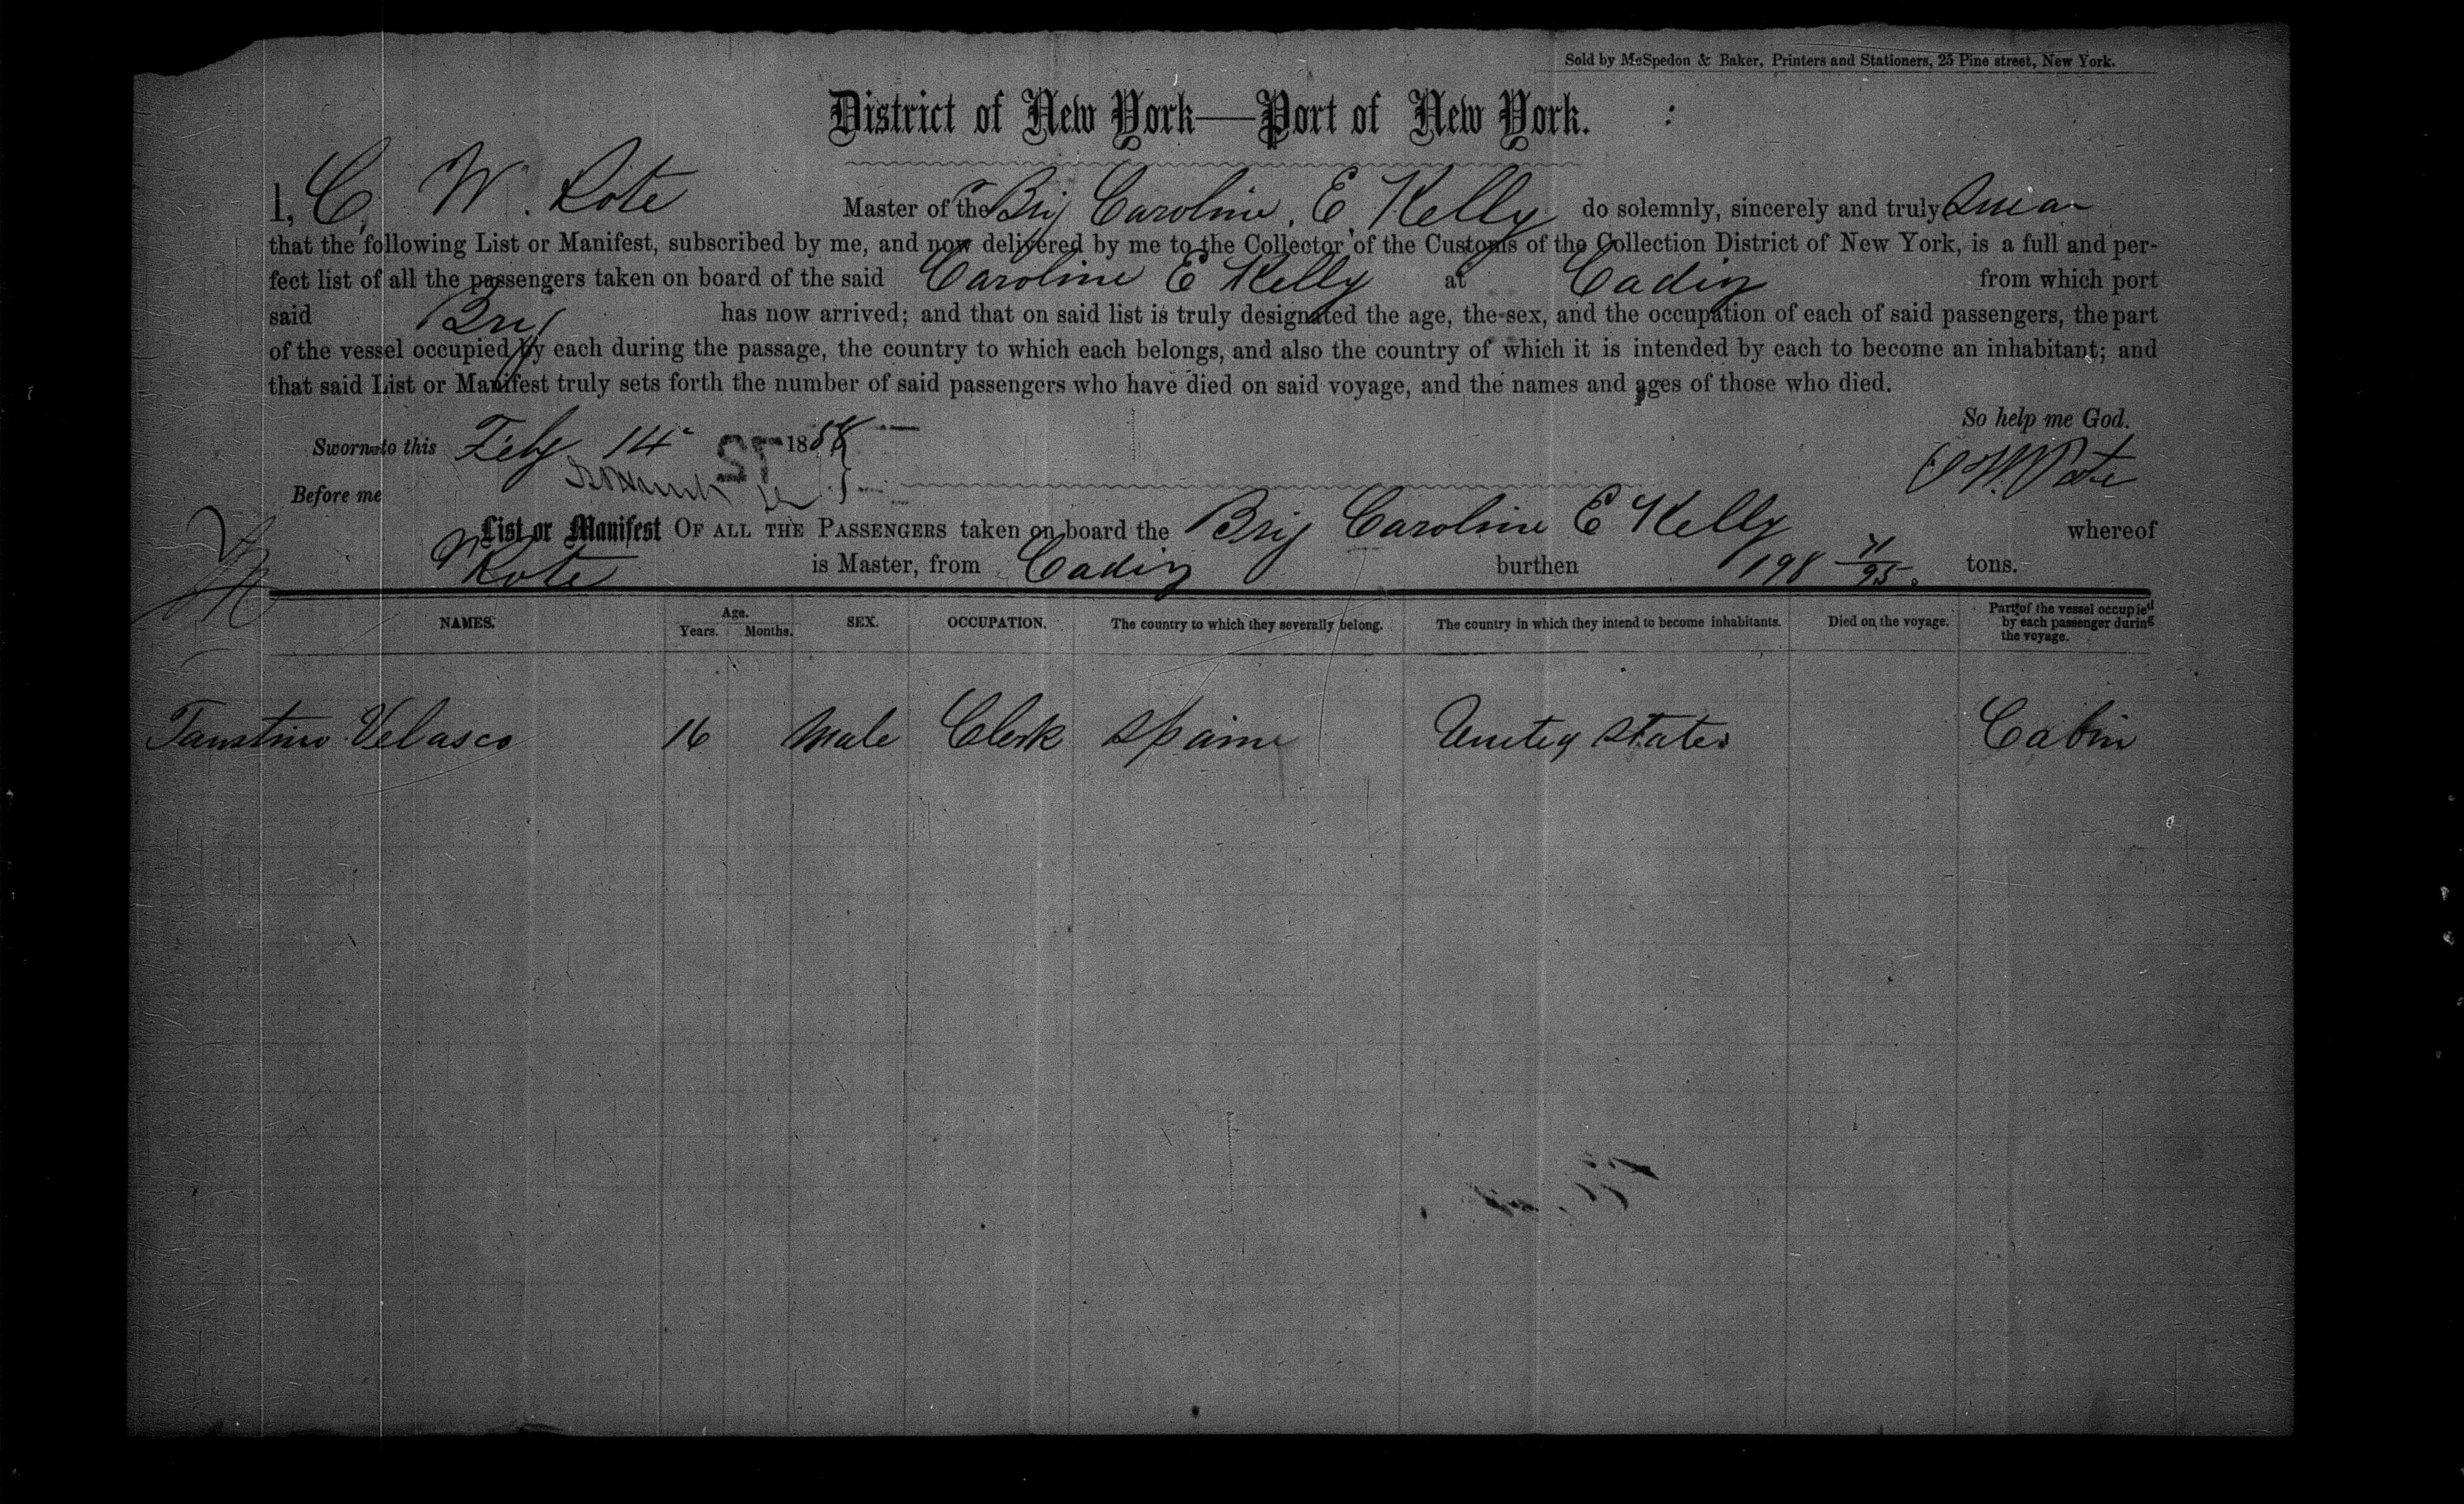 Sold by McSpedon & Baker, Printers and Stationers, 25 Pine street, New York.
District of New York—Port of New York.
I, C. W. Rote Master of the Brig Caroline E Kelly do solemnly, sincerely and truly Swear
that the following List or Manifest, subscribed by me, and now delivered by me to the Collector of the Customs of the Collection District of New York, is a full and per-
fect list of all the passengers taken on board of the said Caroline E Kelly at Cadiz from which port
said Brig has now arrived; and that on said list is truly designated the age, the sex, and the occupation of each of said passengers, the part
of the vessel occupied by each during the passage, the country to which each belongs, and also the country of which it is intended by each to become an inhabitant; and
that said List or Manifest truly sets forth the number of said passengers who have died on said voyage, and the names and ages of those who died.
So help me God.
Sworn to this Feby 14 1858
C W. Rote
Before me
List or Manifest OF ALL THE PASSENGERS taken on board the Brig Caroline E Kelly whereof
Rote is Master, from Cadiz burthen 198 71/95 tons.
NAMES. Age. Years. Months. SEX. OCCUPATION. The country to which they severally belong. The country in which they intend to become inhabitants. Died on the voyage. Part of the vessel occupied by each passenger during the voyage.
Faustino Velasco 16 Male Clerk Spain United States Cabin